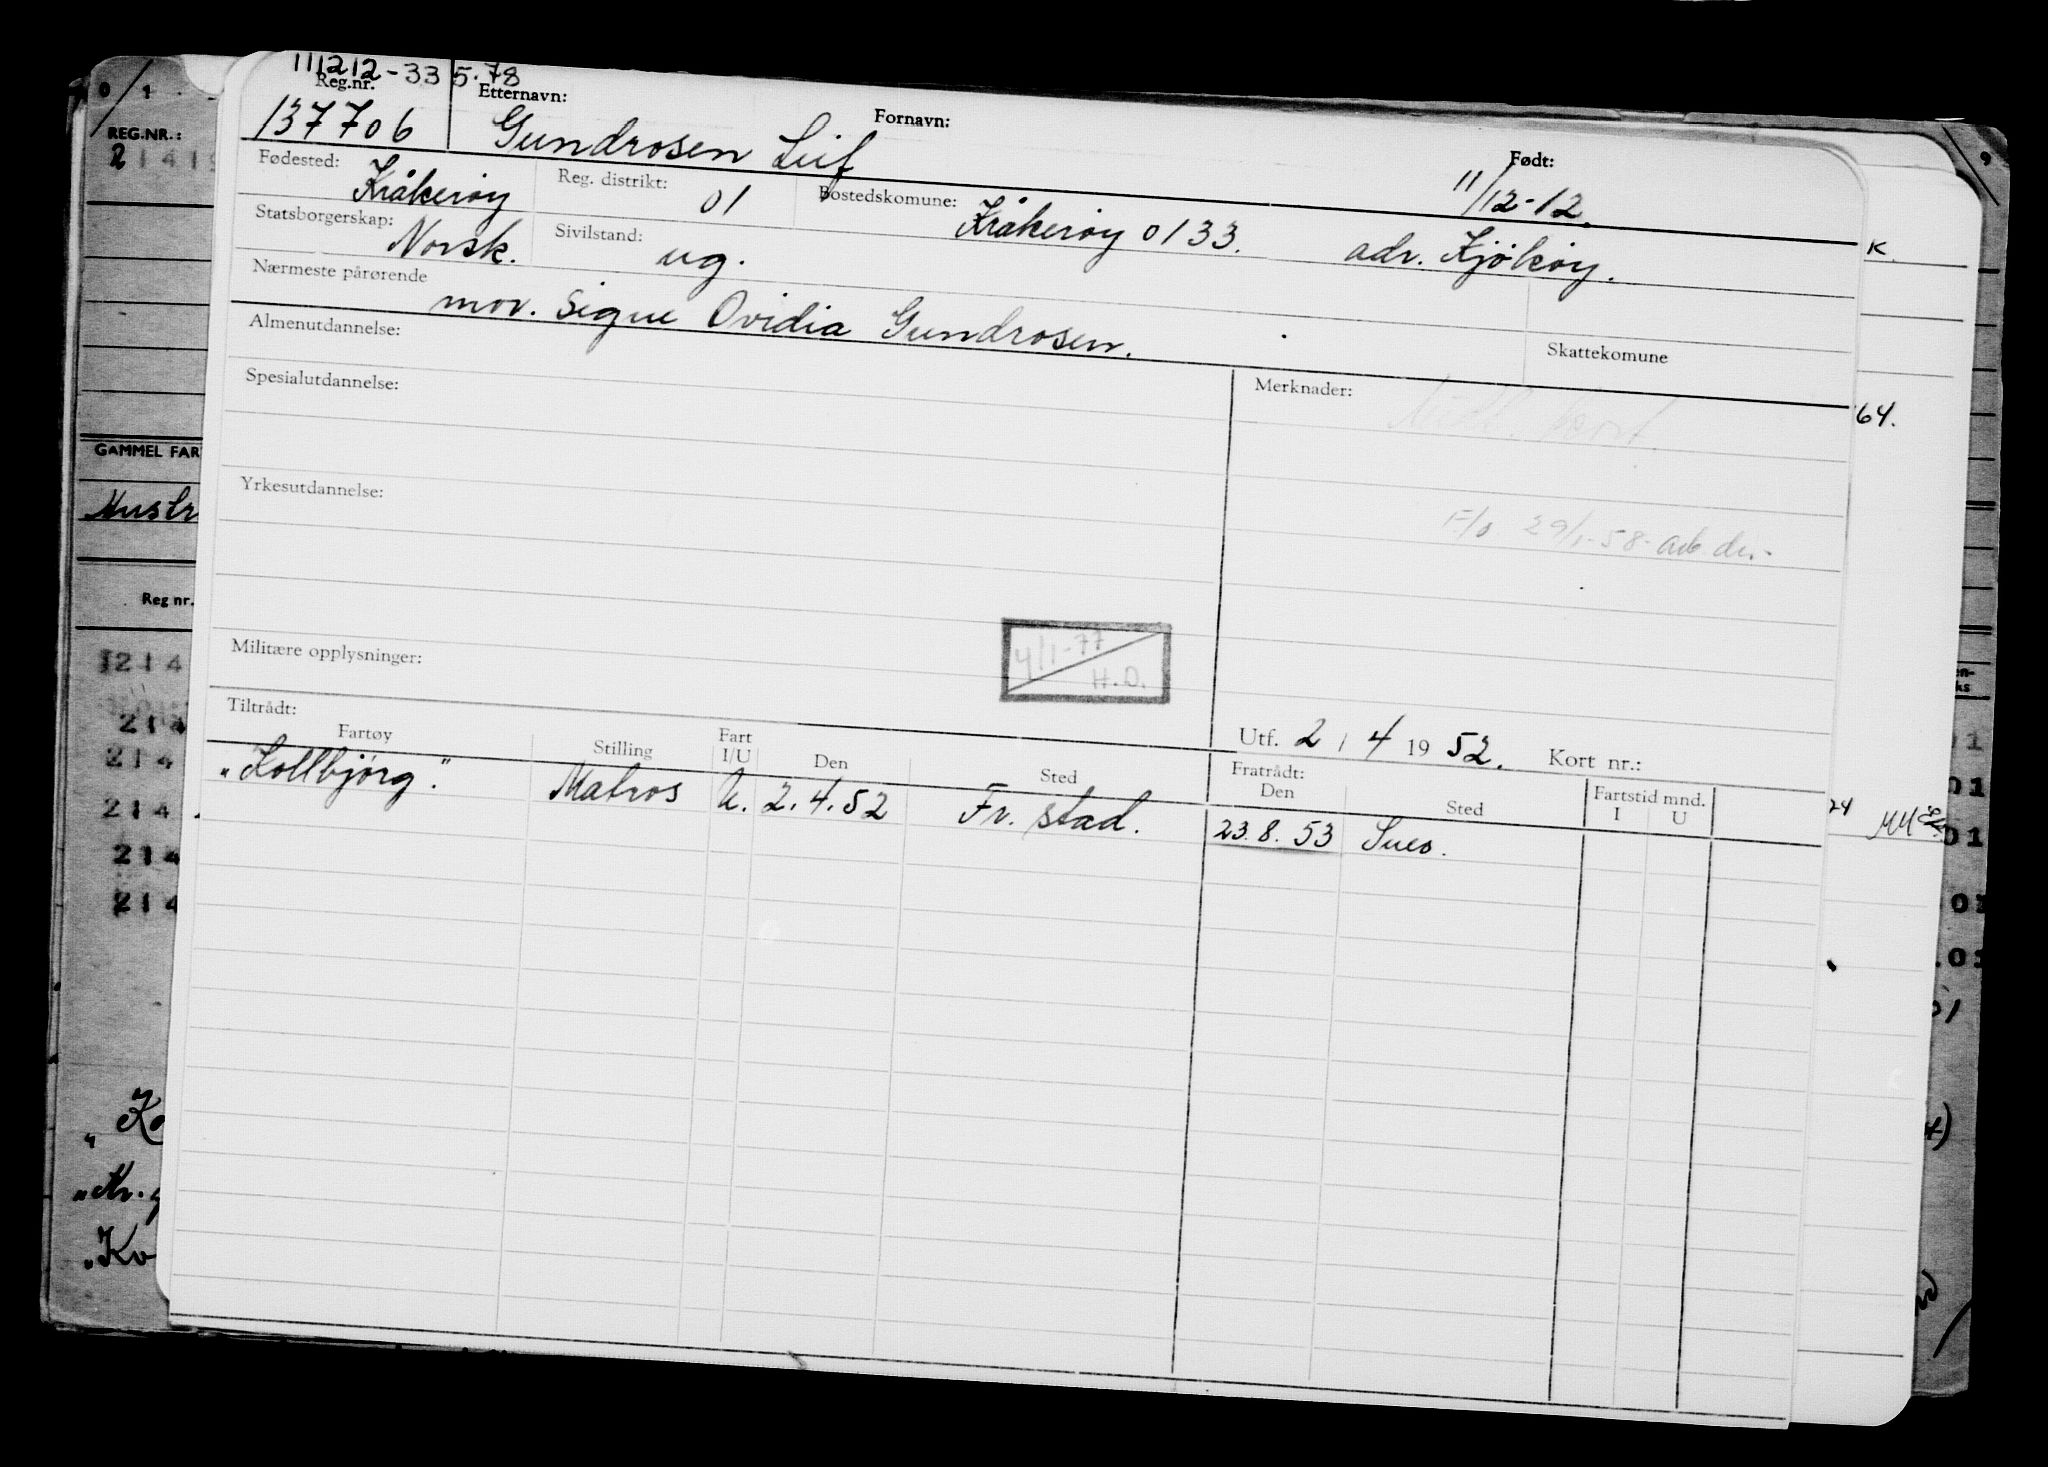 111212-33 5.78
Reg.nr. Etternavn: Fornavn: Født:
137706 Gundrosen Leif 11/12-12.
Fødested: Kråkerøy Reg. distrikt: 01 Bostedskomune: Kråkerøy 0133. adr. Kjøkøy.
Statsborgerskap: Norsk. Sivilstand: ug.
Nærmeste pårørende mor. Signe Ovidia Gundrosen.
Almenutdannelse: Skattekomune
Spesialutdannelse: Merknader:
Yrkesutdannelse:
F/o 29/1-58-
4/1-77
H.O.
Militære opplysninger:
Tiltrådt: Utf. 2 / 4 1952. Kort nr.:
Fartøy Stilling Fart I/U Den Sted Fratrådt: Den Sted Fartstid mnd. I U
"Kollbjørg". Matros U. 2.4.52 Fr. stad. 23.8.53 Sues.
REG.NR.:
GAMMEL FAR
Reg nr.
K.
64.
214
214
214
214
214
214
"Ko
"Kv